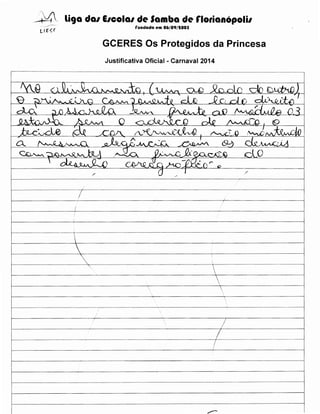 LIESF
Liga das Escolas de Samba de Florianópolis
Fundada em 06/09/2002
GCERES Os Protegidos da Princesa
Justificativa Oficial - Carnaval 2014
No alinhamento, (um ao lado do outro),
O primeiro componente do lado direito
da passarela em frente ao módulo 03
estava sem o adereço de mão, o
tecido de cor vermelho, não mantendo
a mesma elegância com os demais
componentes na finalização do
desenho coreográfico.